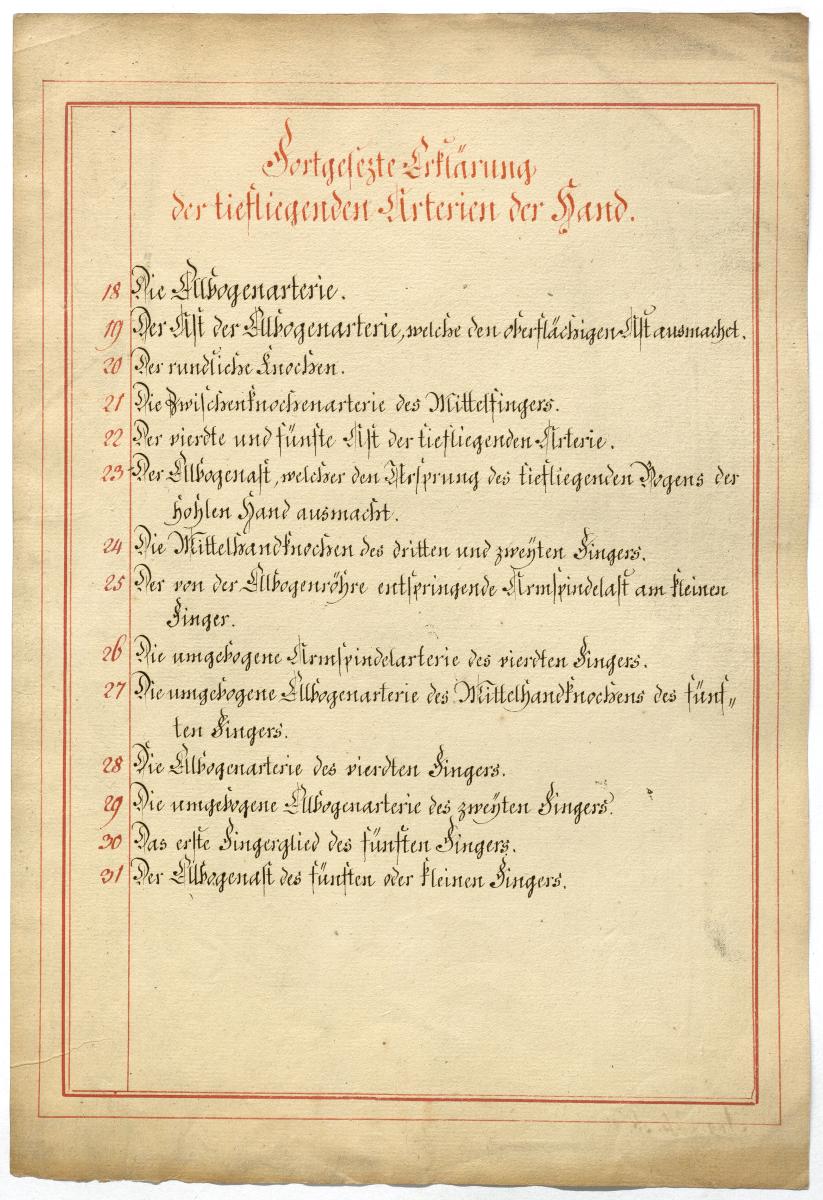 Fortgesezte Erklärung
der tiefliegenden Arterien der Hand.
18 Die Ellbogenarterie.
19 Der Ast der Ellbogenarterie, welche den oberflächigen Ast ausmachet.
20 Der rundliche Knochen.
21 Die Zwischenknochenarterie des Mittelfingers.
22 Der vierdte und fünfte Ast der tiefliegenden Arterie.
23 Der Ellbogenast, welcher den Ursprung des tiefliegenden Bogens der
hohlen Hand ausmacht.
24 Die Mittelhandknochen des dritten und zweyten Fingers.
25 Der von der Ellbogenröhre entspringende Armspindelast am kleinen
Finger.
26 Die umgebogene Armspindelarterie des vierdten Fingers.
27 Die umgebogene Ellbogenarterie des Mittelhandknochens des fünf„
ten Fingers.
28 Die Ellbogenarterie des vierdten Fingers.
29 Die umgebogene Ellbogenarterie des zweyten Fingers.
30 Das erste Fingerglied des fünften Fingers.
31 Der Ellbogenast des fünften oder kleinen Fingers.